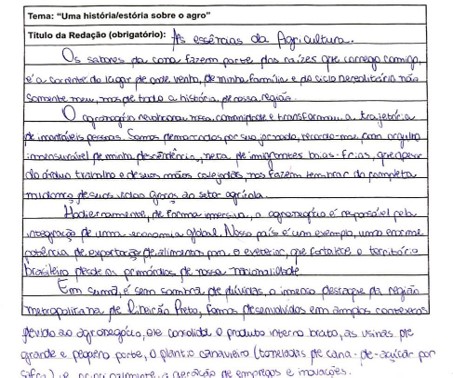 Tema: "Uma história/estória sobre o agro"
Título da Redação (obrigatório): As essências da Agricultura.
Os sabores da cana fazem parte das raízes que carrego comigo,
é a do lugar de onde venho, de minha família e do ciclo hereditário não
somente meu, mas de toda a história de nossa região.
O agronegócio nossa comunidade e transformou a trajetória
de pessoas. Somos por sua jornada, com orgulho
imensurável de minha descendência, neta de imigrantes boias-frias, que apesar
do árduo trabalho e de suas mãos calejadas, nos fazem lembrar da completa
mudança de suas vidas graças ao setor agrícola.
Hodiernamente, de forma imersiva, o agronegócio é responsável pela
integração de uma economia global. Nosso país é um exemplo, uma enorme
potência de exportação de alimentos para o exterior, que fortalece o território
brasileiro desde os primórdios de nossa nacionalidade.
Em suma, é sem sombra de dúvidas, o imenso destaque da região
metropolitana de Ribeirão Preto, fomos desenvolvidos em amplos contextos
devido ao agronegócio, ele consolida o produto interno bruto, as usinas de
grande e pequeno porte, o plantio canavieiro (toneladas de cana-de-açúcar por
safra) e principalmente a geração de empregos e inovações.